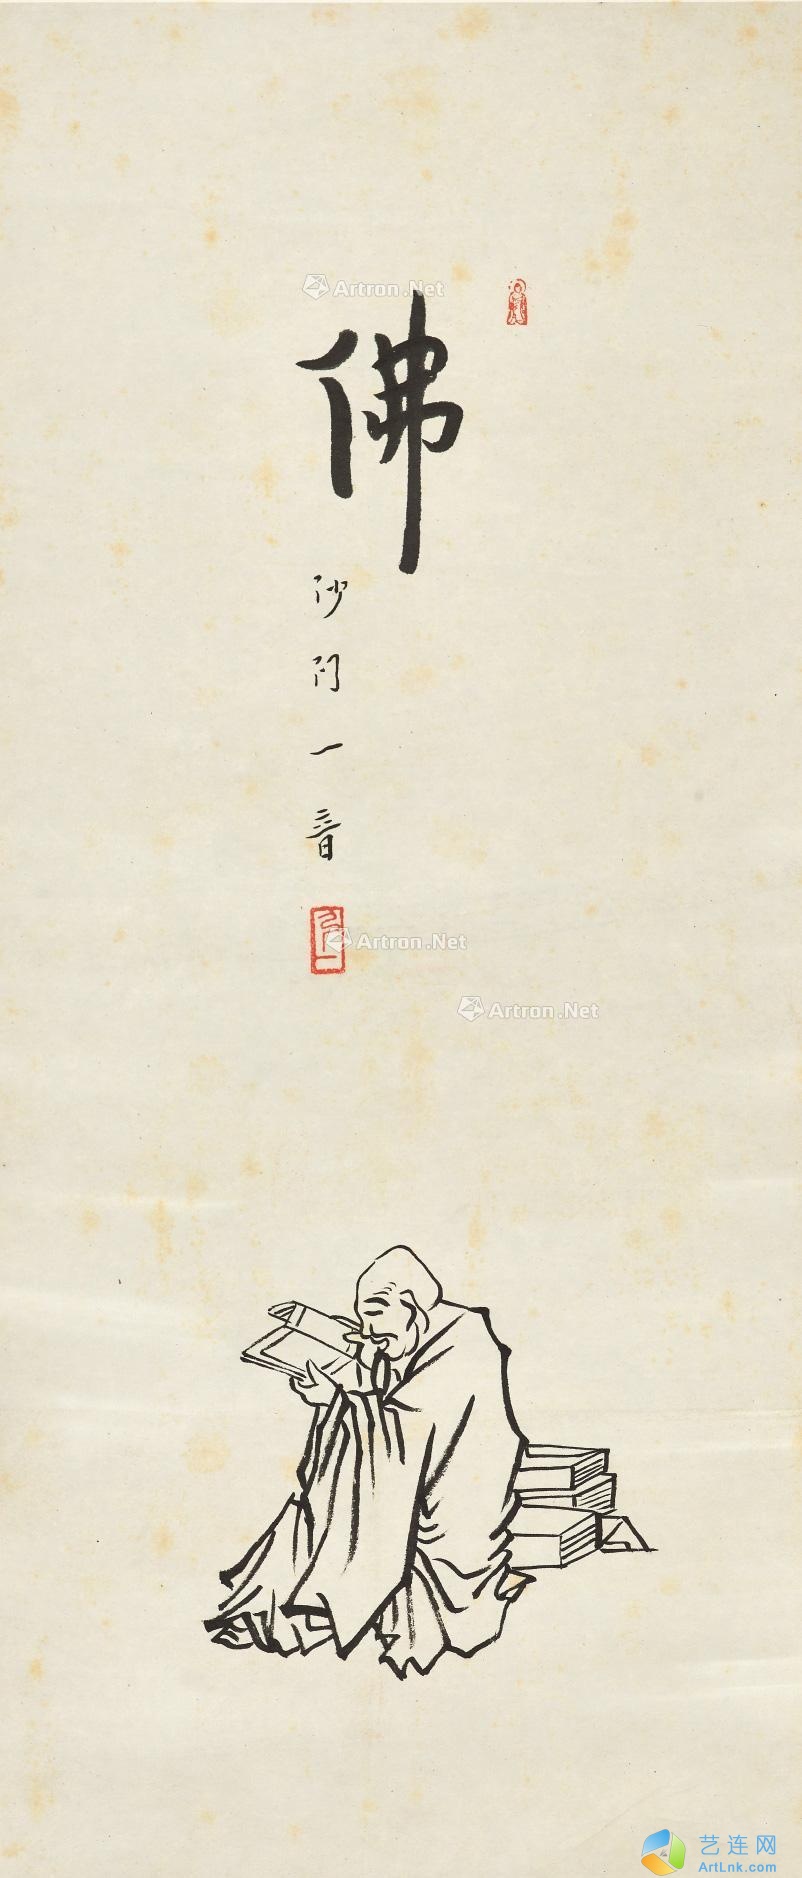 Artron.Net
佛
沙門一音
Artron.Net
Artron.Net
艺连网
ArtLnk.com